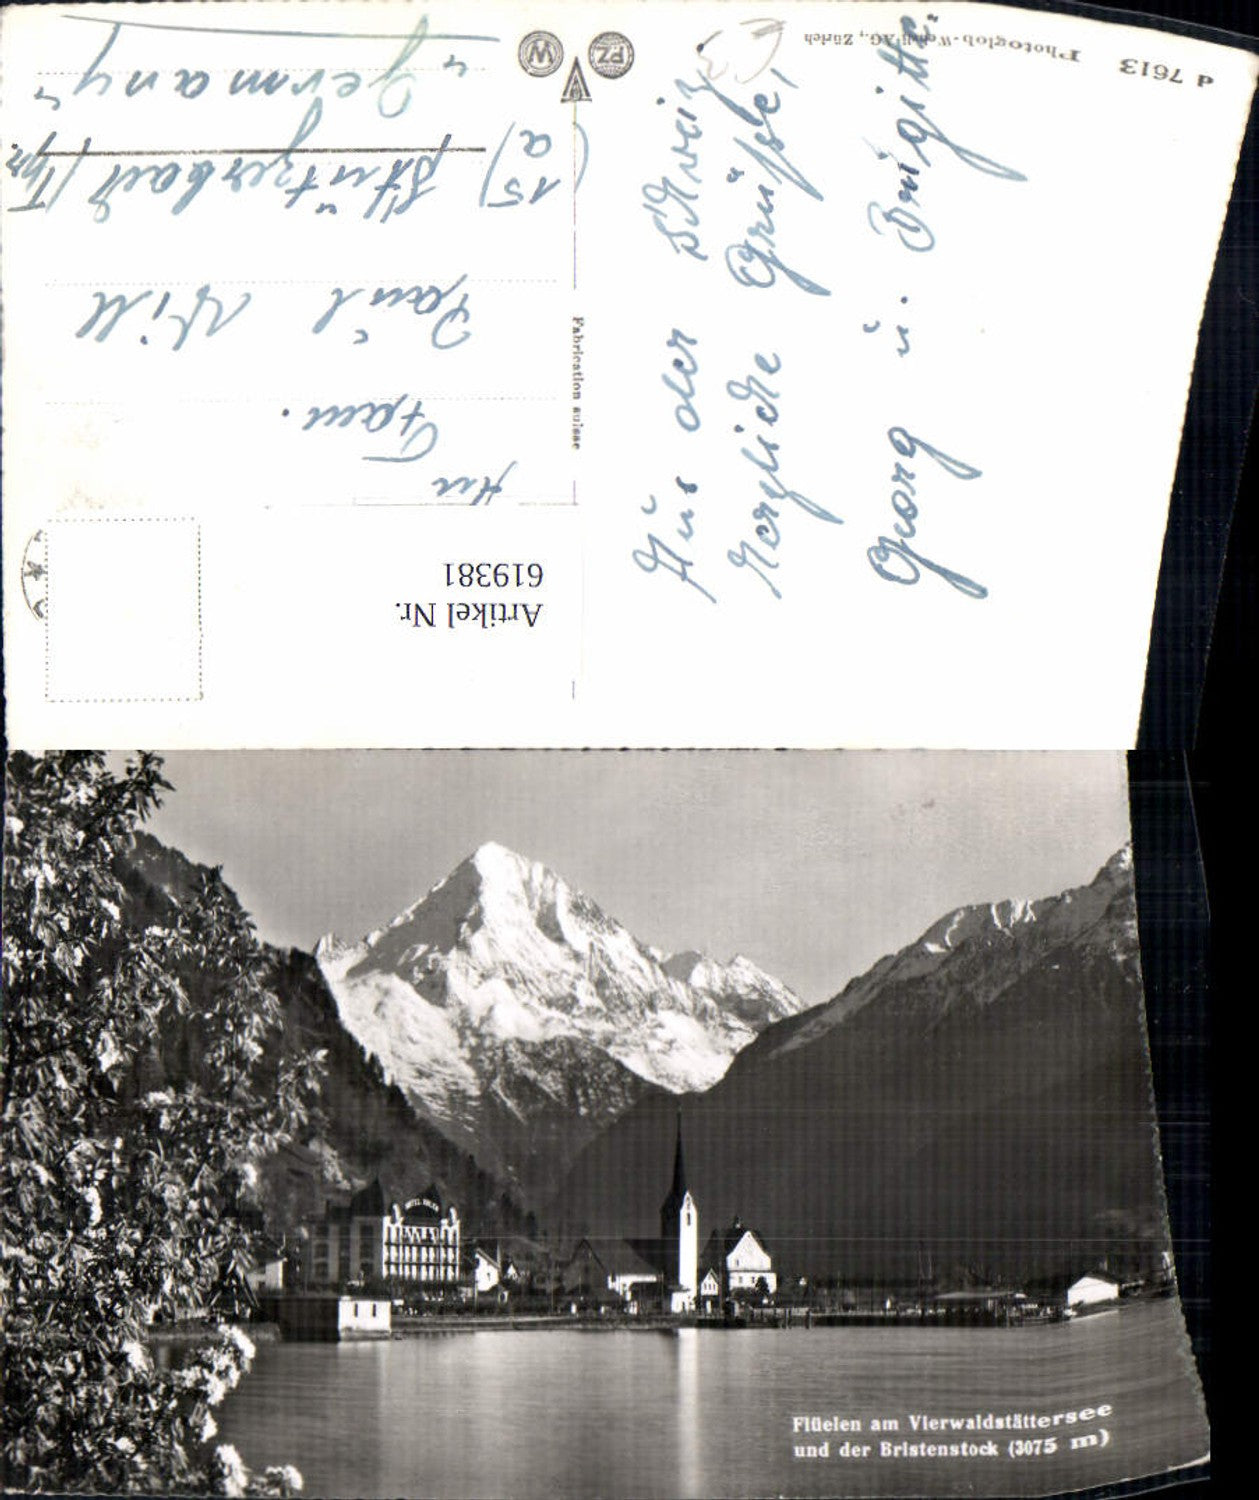 d 7613 Photoglob-Wehrli AG., Zürich
Aus der Schweiz
herzliche Grüsse,
Georg u. Brigitte
Fabrication suisse
PZ
W
Artikel Nr.
619381
An
Fam.
Paul Will
(15a) Stützerbach/Thür.
"Germany"
Flüelen am Vierwaldstättersee
und der Bristenstock (3075 m)